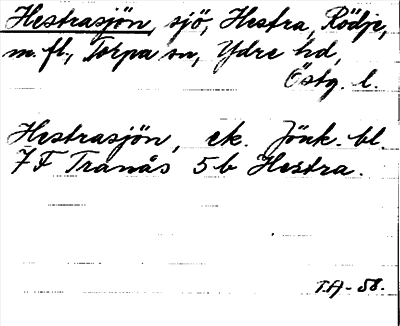 Hestrasjön, sjö, Hestra, Rödje,
m.fl., Torpa sn, Ydre hd,
Östg. l.
Hestrasjön, ek. Jönk. bl.
7 F Tranås 5b Hestra.
T.A-58.